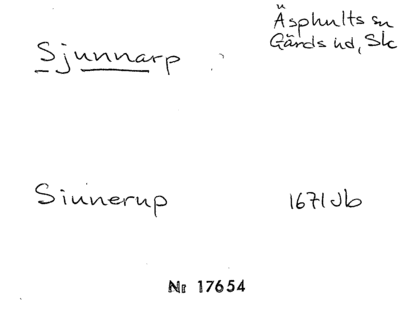 Sjunnarp
Äsphults sn
Gärds hd, Sk
Siunerup
1671 Jb
Nr 17654